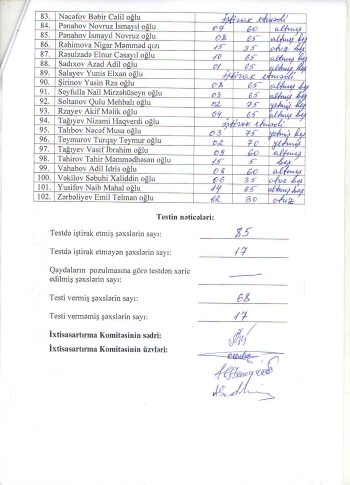 83. Nəcəfov Bəbir Cəlil oğlu iştirak etmədi
84. Pənahov Novruz İsmayıl oğlu 07 60 altmış
85. Pənahov İsmayıl Novruz oğlu 08 65 altmış beş
86. Rəhimova Nigar Məmməd qızı 15 35 otuz beş
87. Rəsulzadə Elnur Cəsayıl oğlu 10 65 altmış beş
88. Sadıxov Azad Adil oğlu 01 65 altmış beş
89. Salayev Yunis Elxan oğlu iştirak etmədi
90. Şirinov Yasin Rza oğlu 08 65 altmış beş
91. Seyfulla Nail Mirzəhüseyn oğlu 03 65 altmış beş
92. Soltanov Qulu Mehbalı oğlu 02 75 yetmiş beş
93. Rzayev Akif Məlik oğlu 04 65 altmış beş
94. Tağıyev Nizami Haqverdi oğlu iştirak etmədi
95. Talıbov Nəcəf Musa oğlu 03 75 yetmiş beş
96. Teymurov Turqay Teymur oğlu 02 70 yetmiş
97. Tağıyev Vasif İbrahim oğlu 04 60 altmış
98. Tahirov Tahir Məmmədhəsən oğlu 15 5 beş
99. Vahabov Adil İdris oğlu 06 60 altmış
100. Vəkilov Səbuhi Xaliddin oğlu 06 35 otuz beş
101. Yusifov Naib Mahal oğlu 14 65 altmış beş
102. Zərbəliyev Emil Telman oğlu 12 30 otuz
Testin nəticələri:
Testdə iştirak etmiş şəxslərin sayı: 85
Testdə iştirak etməyən şəxslərin sayı: 17
Qaydaların pozulmasına görə testdən xaric
edilmiş şəxslərin sayı: —
Testi vermiş şəxslərin sayı: 68
Testi verməmiş şəxslərin sayı: 17
İxtisasartırma Komitəsinin sədri:
İxtisasartırma Komitəsinin üzvləri: